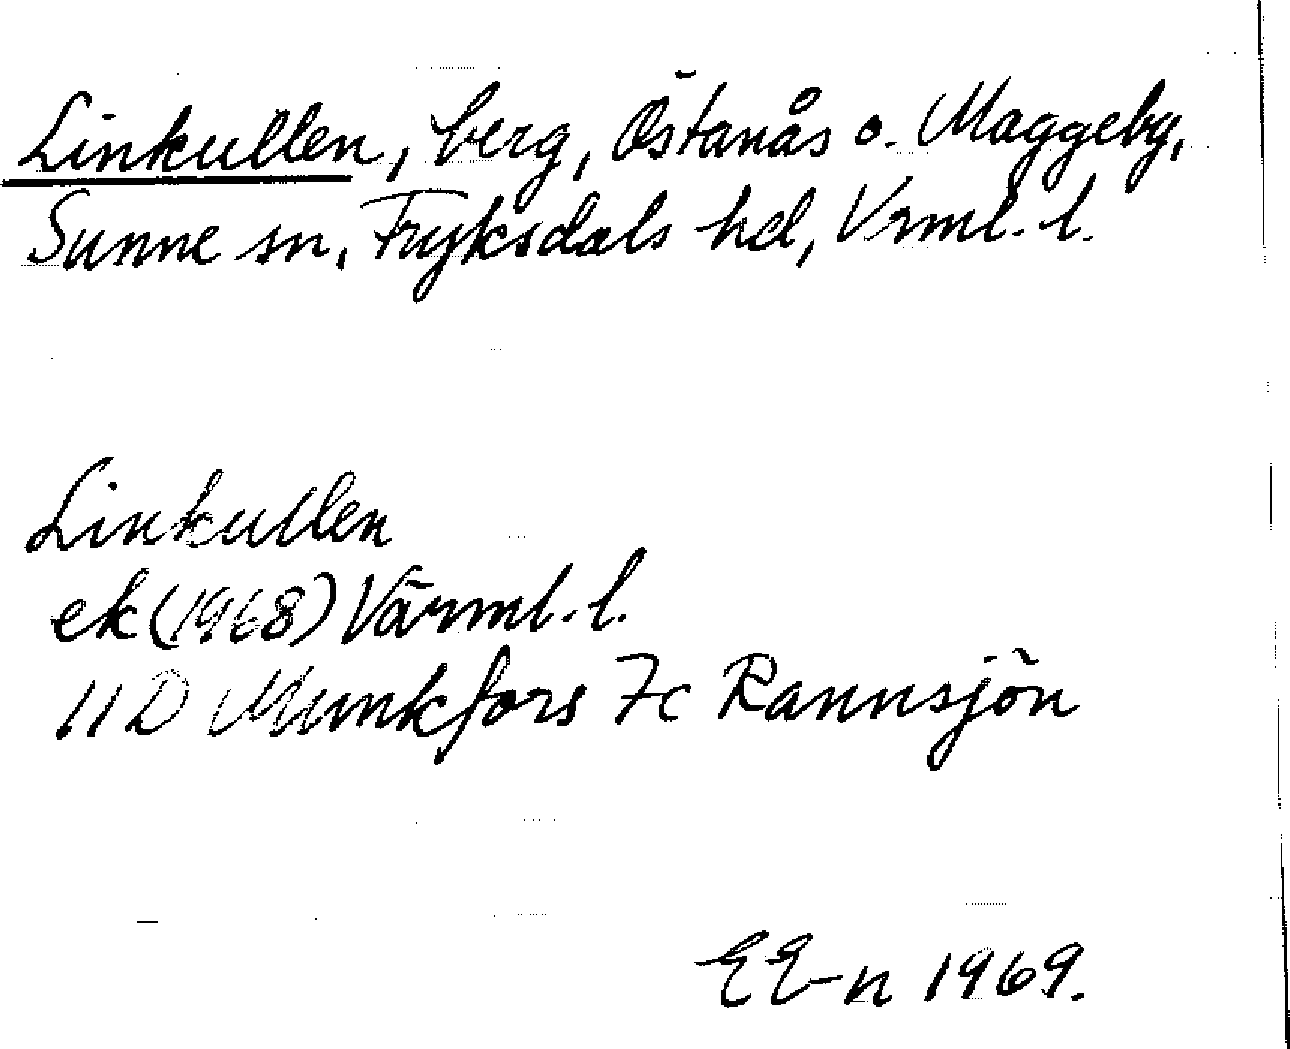 Linkullen, berg, Östanås o. Maggeby,
Sunne sn, Fryksdals hd, Vrml. l.
Linkullen
ek (1968) Värml. l.
11D Munkfors 7c Rannsjön
EE-n 1969.